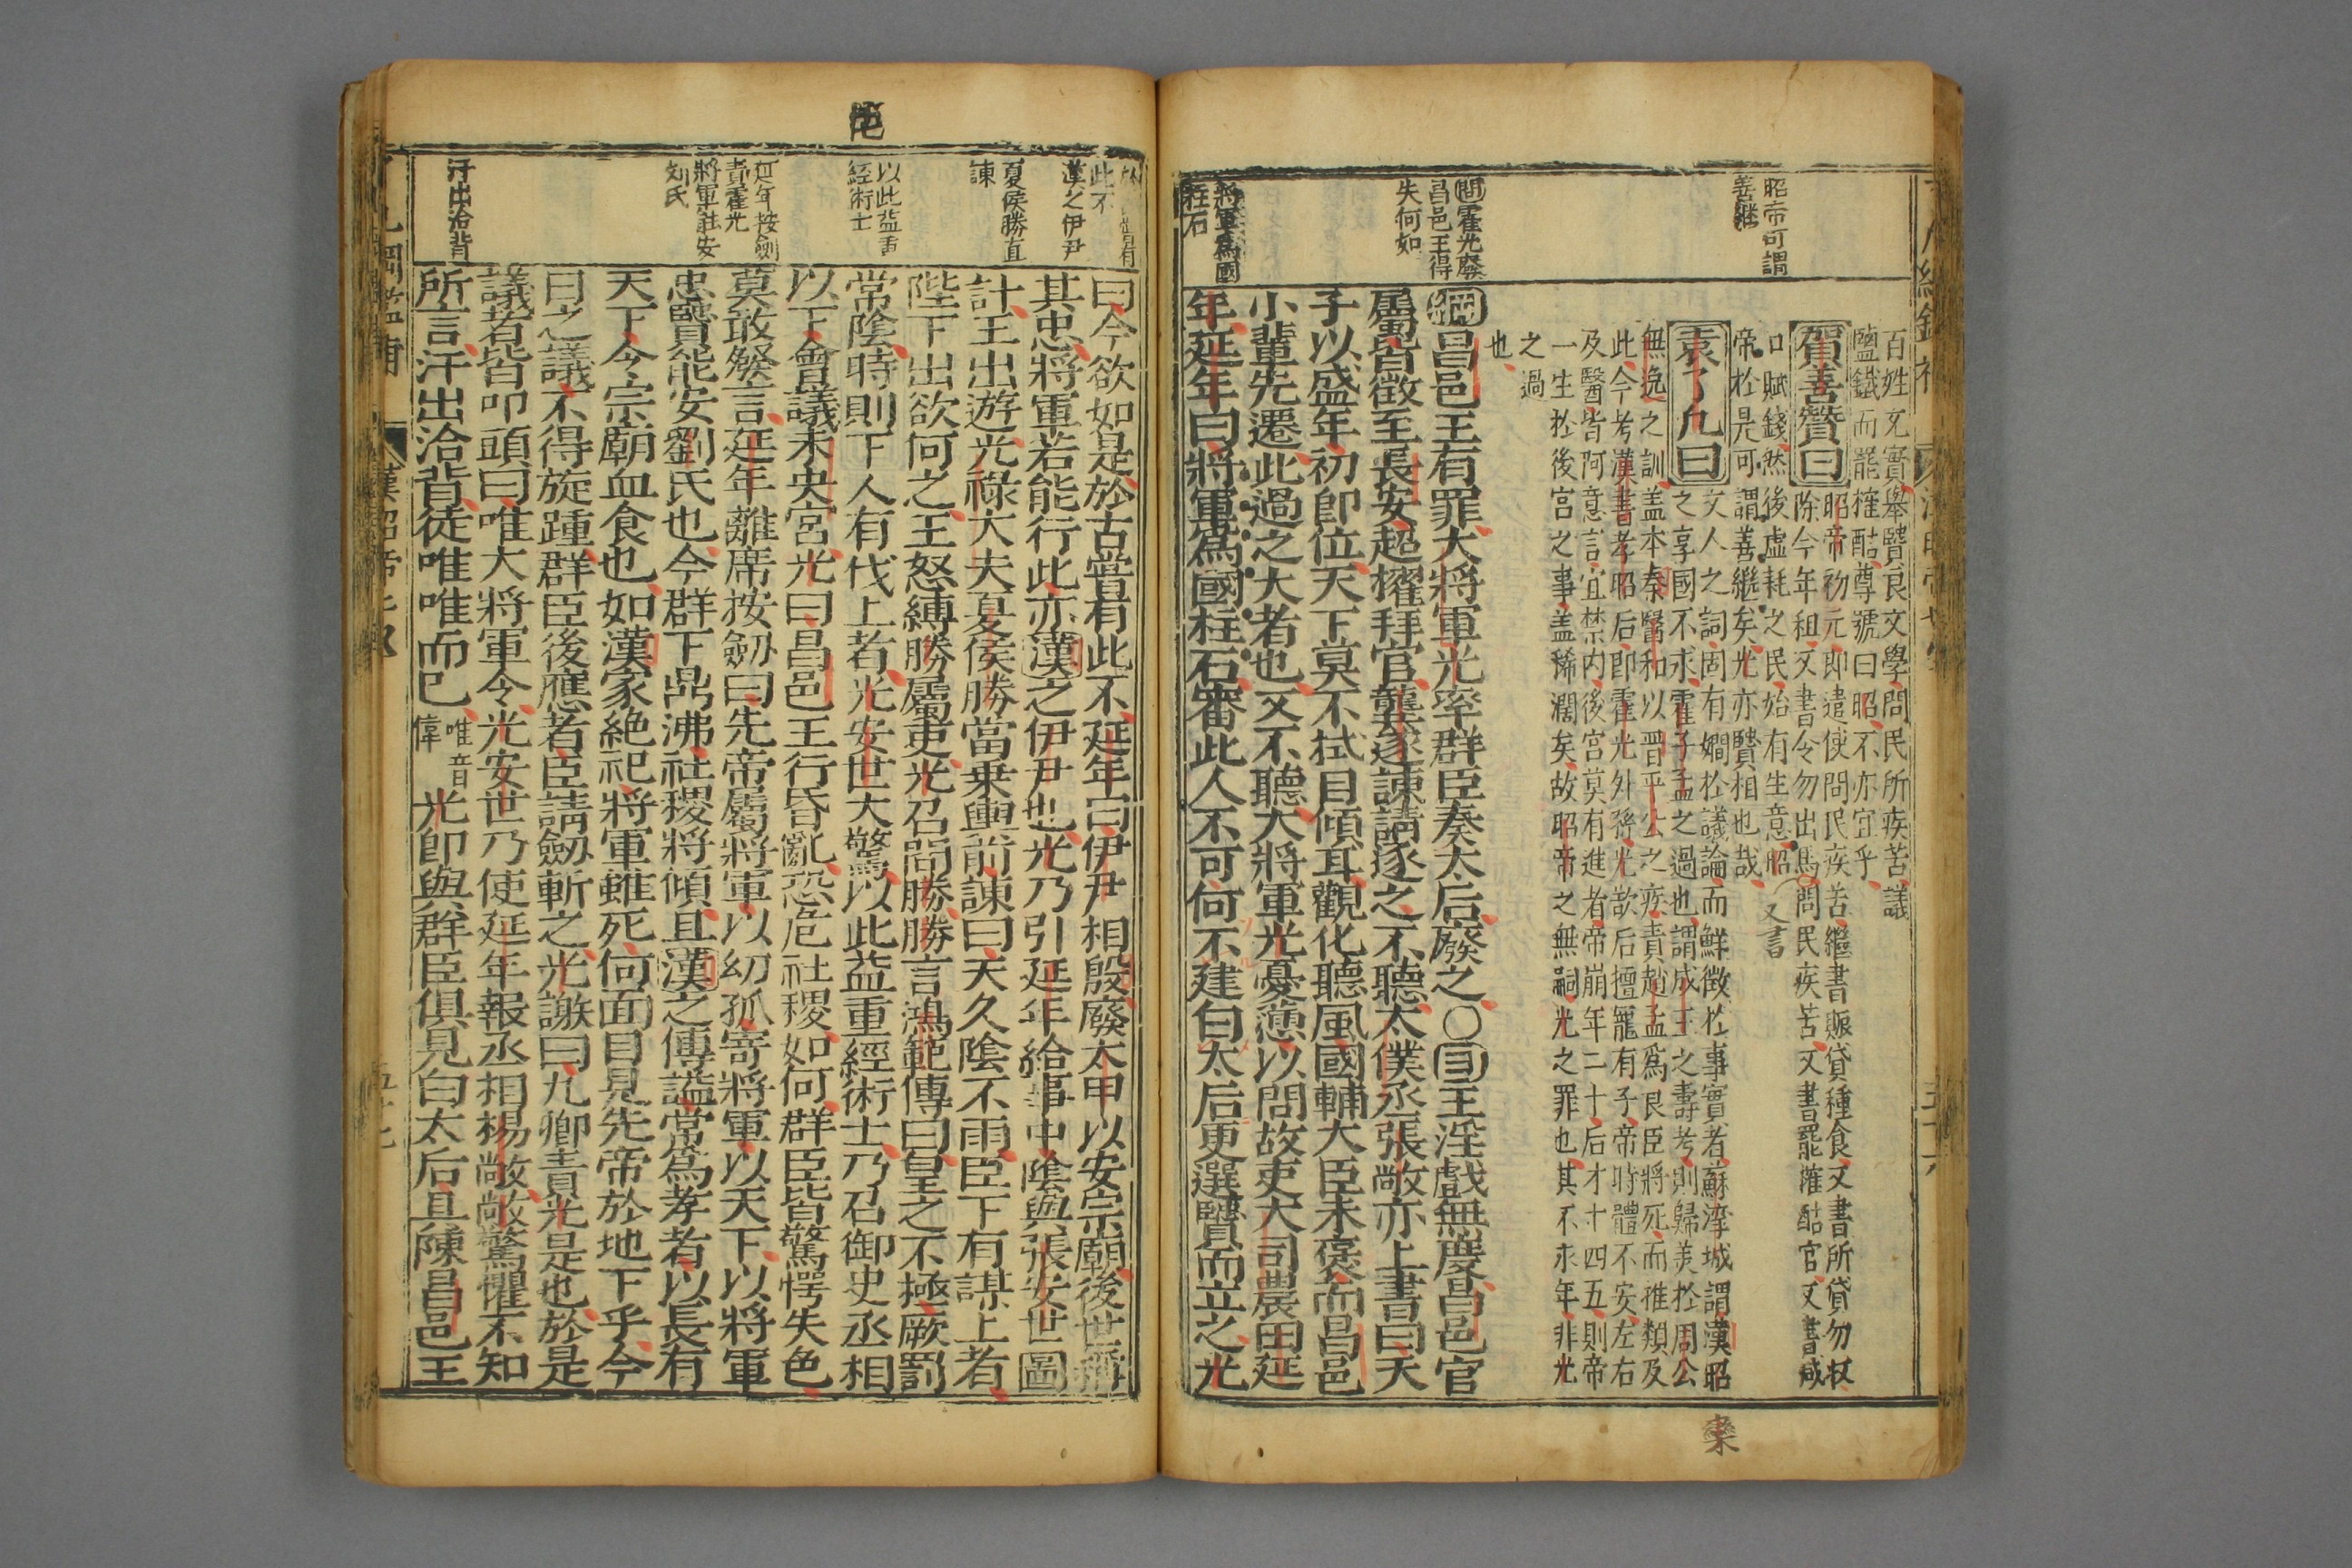 昭帝可謂
善継
問霍光廢
昌邑王得
失何如
將軍為國
柱石
百姓充實舉賢良文學問民所疾苦議
鹽鐵而罷榷酤尊號曰昭不亦宜乎
賀善贊曰昭帝初元即遣使問民疾苦繼書賑貸種食又書所貸勿收
除今年租又書令勿出馬問民疾苦又書罷榷酤官又書減
口賦錢然後虛耗之民始有生意昭
又書
帝於是可謂善繼矣光亦賢相也哉
袁了凡曰文人之詞固有嫺於議論而鮮徵於事實者蘇潁城謂漢昭
之享國不求霍子孟之過也謂成王之壽考則歸美於周公
無逸之訓盖本秦醫和以晋平公之疾責趙孟爲良臣將死而推類及
此今考漢書孝昭后即霍光外孫光欲后擅寵有子帝時體不安左右
及醫皆阿意言宜禁内後宮莫有進者帝崩年二十后才十四五則帝
一生於後宮之事盖稀濶矣故昭帝之無嗣光之罪也其不求年非光
之過
也
綱昌邑王有罪大將軍光率群臣奏太后廢之〇目王淫戲無度昌邑官
屬皆徵至長安超擢拜官龔遂諫請逐之不聽太僕丞張敞亦上書曰天
子以盛年初即位天下莫不拭目傾耳觀化聽風國輔大臣未褒而昌邑
小輦先遷此過之大者也又不聽大將軍光憂懣以問故吏大司農田延
年延年曰將軍爲國柱石審此人不可何不建白太后更選賢而立之光
欒
此不
漢之伊尹
夏侯勝直
諫
以此益重
經術士
延年按劍
責霍光
將軍能安
刘氏
汗出洽背
曰今欲如是於古嘗有此不延年曰伊尹相殷廢太甲以安宗廟後世稱
其忠將軍若能行此亦漢之伊尹也光乃引延年給事中陰與張安世圖
計王出遊光祿大夫夏侯勝當乗輿前諫曰天久陰不雨臣下有謀上者
陛下出欲何之王怒縛勝屬吏光召問勝勝言鴻範傳曰皇之不極厥罰
常陰時則下人有伐上者光安世大驚以此益重經術士乃召御史丞相
以下會議未央宮光曰昌邑王行昏亂恐危社稷如何群臣皆驚愕失色
莫敢發言延年離席按劒曰先帝屬將軍以幼孤寄將軍以天下以將軍
忠賢能安劉氏也今群下鼎沸社稷將傾且漢之傳謚常爲孝者以長有
天下今宗廟血食也如漢家絶祀將軍雖死何面目見先帝於地下乎今
日之議不得旋踵群臣後應者臣請劒斬之光謝曰九卿責光是也於是
議者皆叩頭曰唯大將軍令光安世乃使延年報丞相楊敞敞驚懼不知
所言汗出洽背徒唯唯而已唯音偉光即與群臣俱見白太后具陳昌邑王